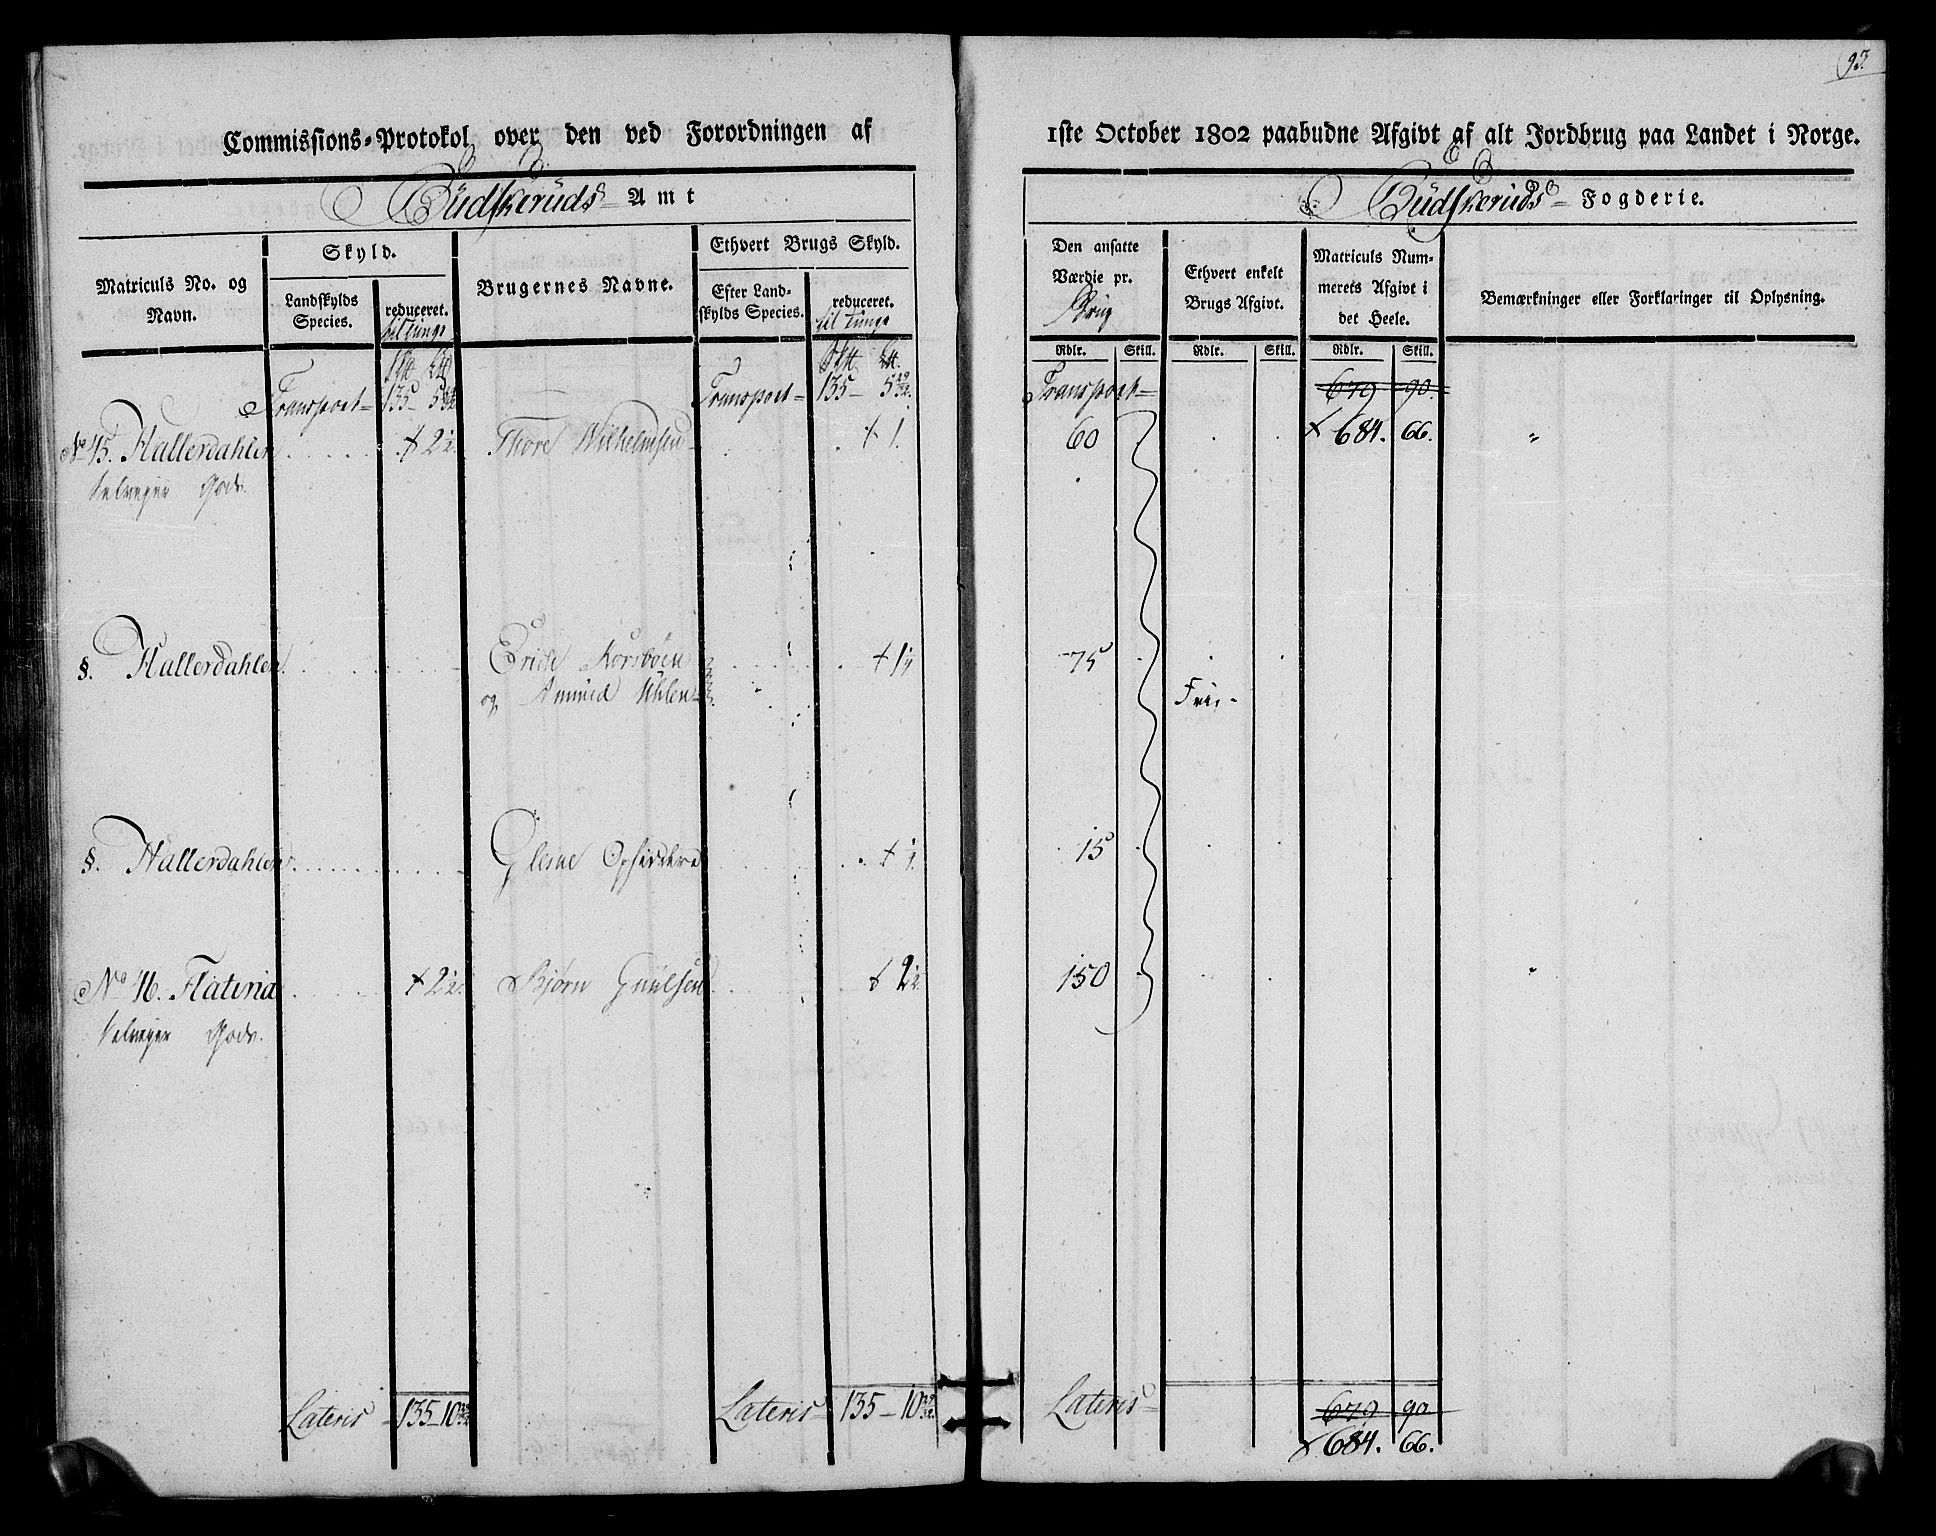 93.
Commissions-Protokol over den ved Forordningen af 1ste October 1802 paabudne Afgivt af alt Jordbrug paa Landet i Norge.
Budskeruds Amt
Budskeruds Fogderie.
Matriculs No. og Navn.
Skyld.
Landskylds Species.
reduceret.
til tunge
Brugernes Navne.
Ethvert Brugs Skyld.
Efter Landskylds Species.
reduceret.
til tunge
Den ansatte Værdie pr. Brug
Ethvert enkelt Brugs Afgivt.
Matriculs Nummerets Afgivt i det Heele.
Bemærkninger eller Forklaringer til Oplysning.
Rdlr. Skill. Rdlr. Skill. Rdlr. Skill.
Transport 135 - 5 29/32 Transport 135 - 5 29/32 Transport 679 90.
No 45. Hallerdahlen 2½ Thore Wilhelmsen 1. 60 684. 66. "
Selveyer Gods.
§. Hallerdahlen Erich Korsbøen 1¼ 75
og Amund Uhlen Fri,
§. Hallerdahlen Glesne Opsidere ¼ 15
No 46. Flaterud 2½ Bjørn Gulsen 2½ 150 "
Selveyer Gods.
Lateris 135 - 10 29/32 Lateris 135 - 10 29/32 Lateris 679 90
684. 66.